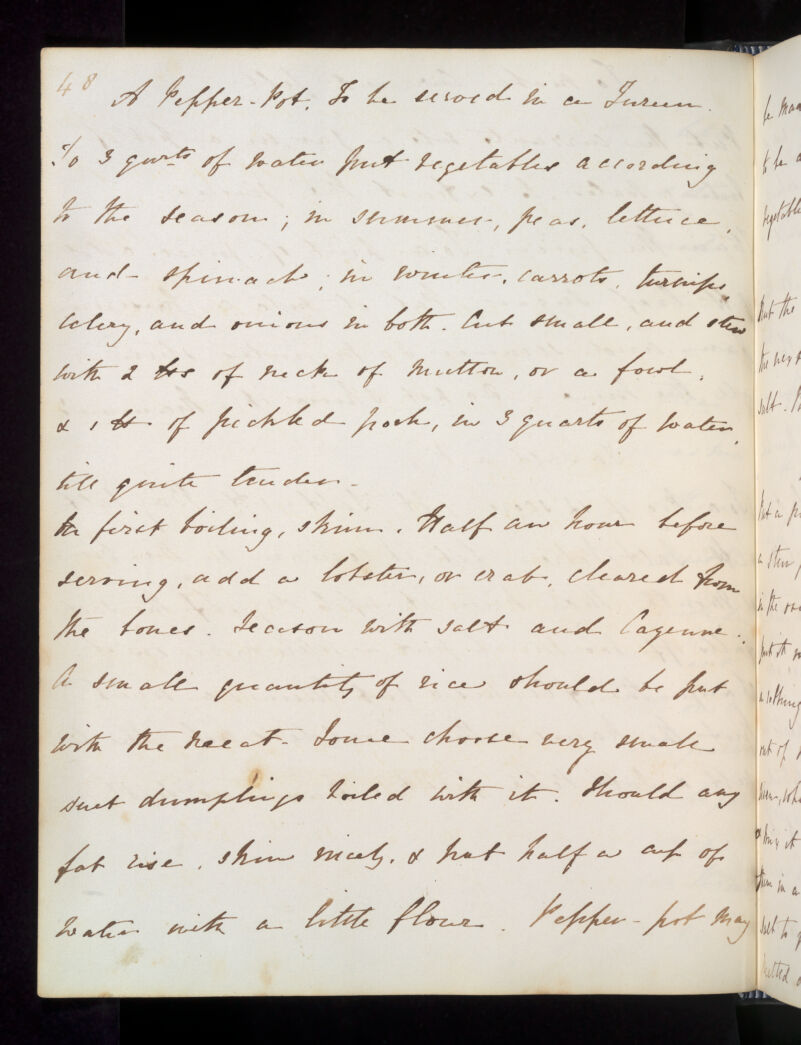 48
A Pepper-Pot. To be served in a Tureen.
To 3 quarts of water put vegetables according
to the season; in summer, peas, lettuce,
and spinach; in winter, carrots, turnips,
celery, and onions in both. Cut small, and stew
with 2 lbs of neck of mutton, or a fowl,
& 1 lb of pickled pork, in 3 quarts of water,
till quite tender.
On first boiling, skim. Half an hour before
serving, add a lobster, or crab, cleared from
the bones. Season with salt and Cayenne.
A small quantity of rice should be put
with the meat. Some choose very small
suet dumplings boiled with it. Should any
fat rise, skim nicely, & put half a cup of
water with a little flour. Pepper-pot may
to be
But the
the
salt.
in the
out of
it
in a
salt to